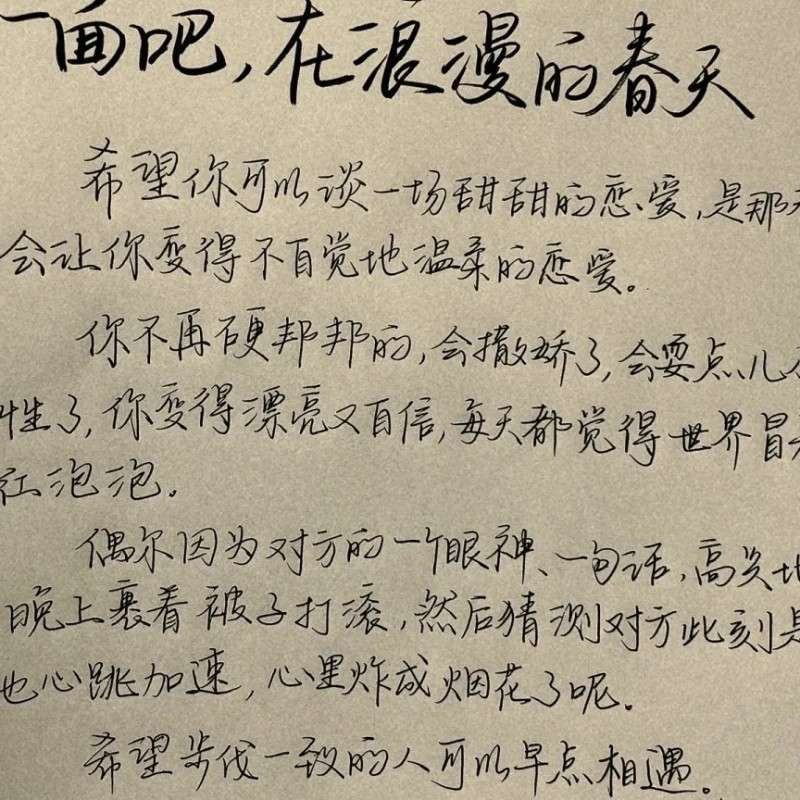 一面吧，在浪漫的春天
希望你可以谈一场甜甜的恋爱，是那
会让你变得不自觉地温柔的恋爱。
你不再硬邦邦的，会撒娇了，会耍点儿
性了，你变得漂亮又自信，每天都觉得世界冒
红泡泡。
偶尔因为对方的一个眼神、一句话，高兴地
晚上裹着被子打滚，然后猜测对方此刻是
也心跳加速，心里炸成烟花了呢。
希望步伐一致的人可以早点相遇。